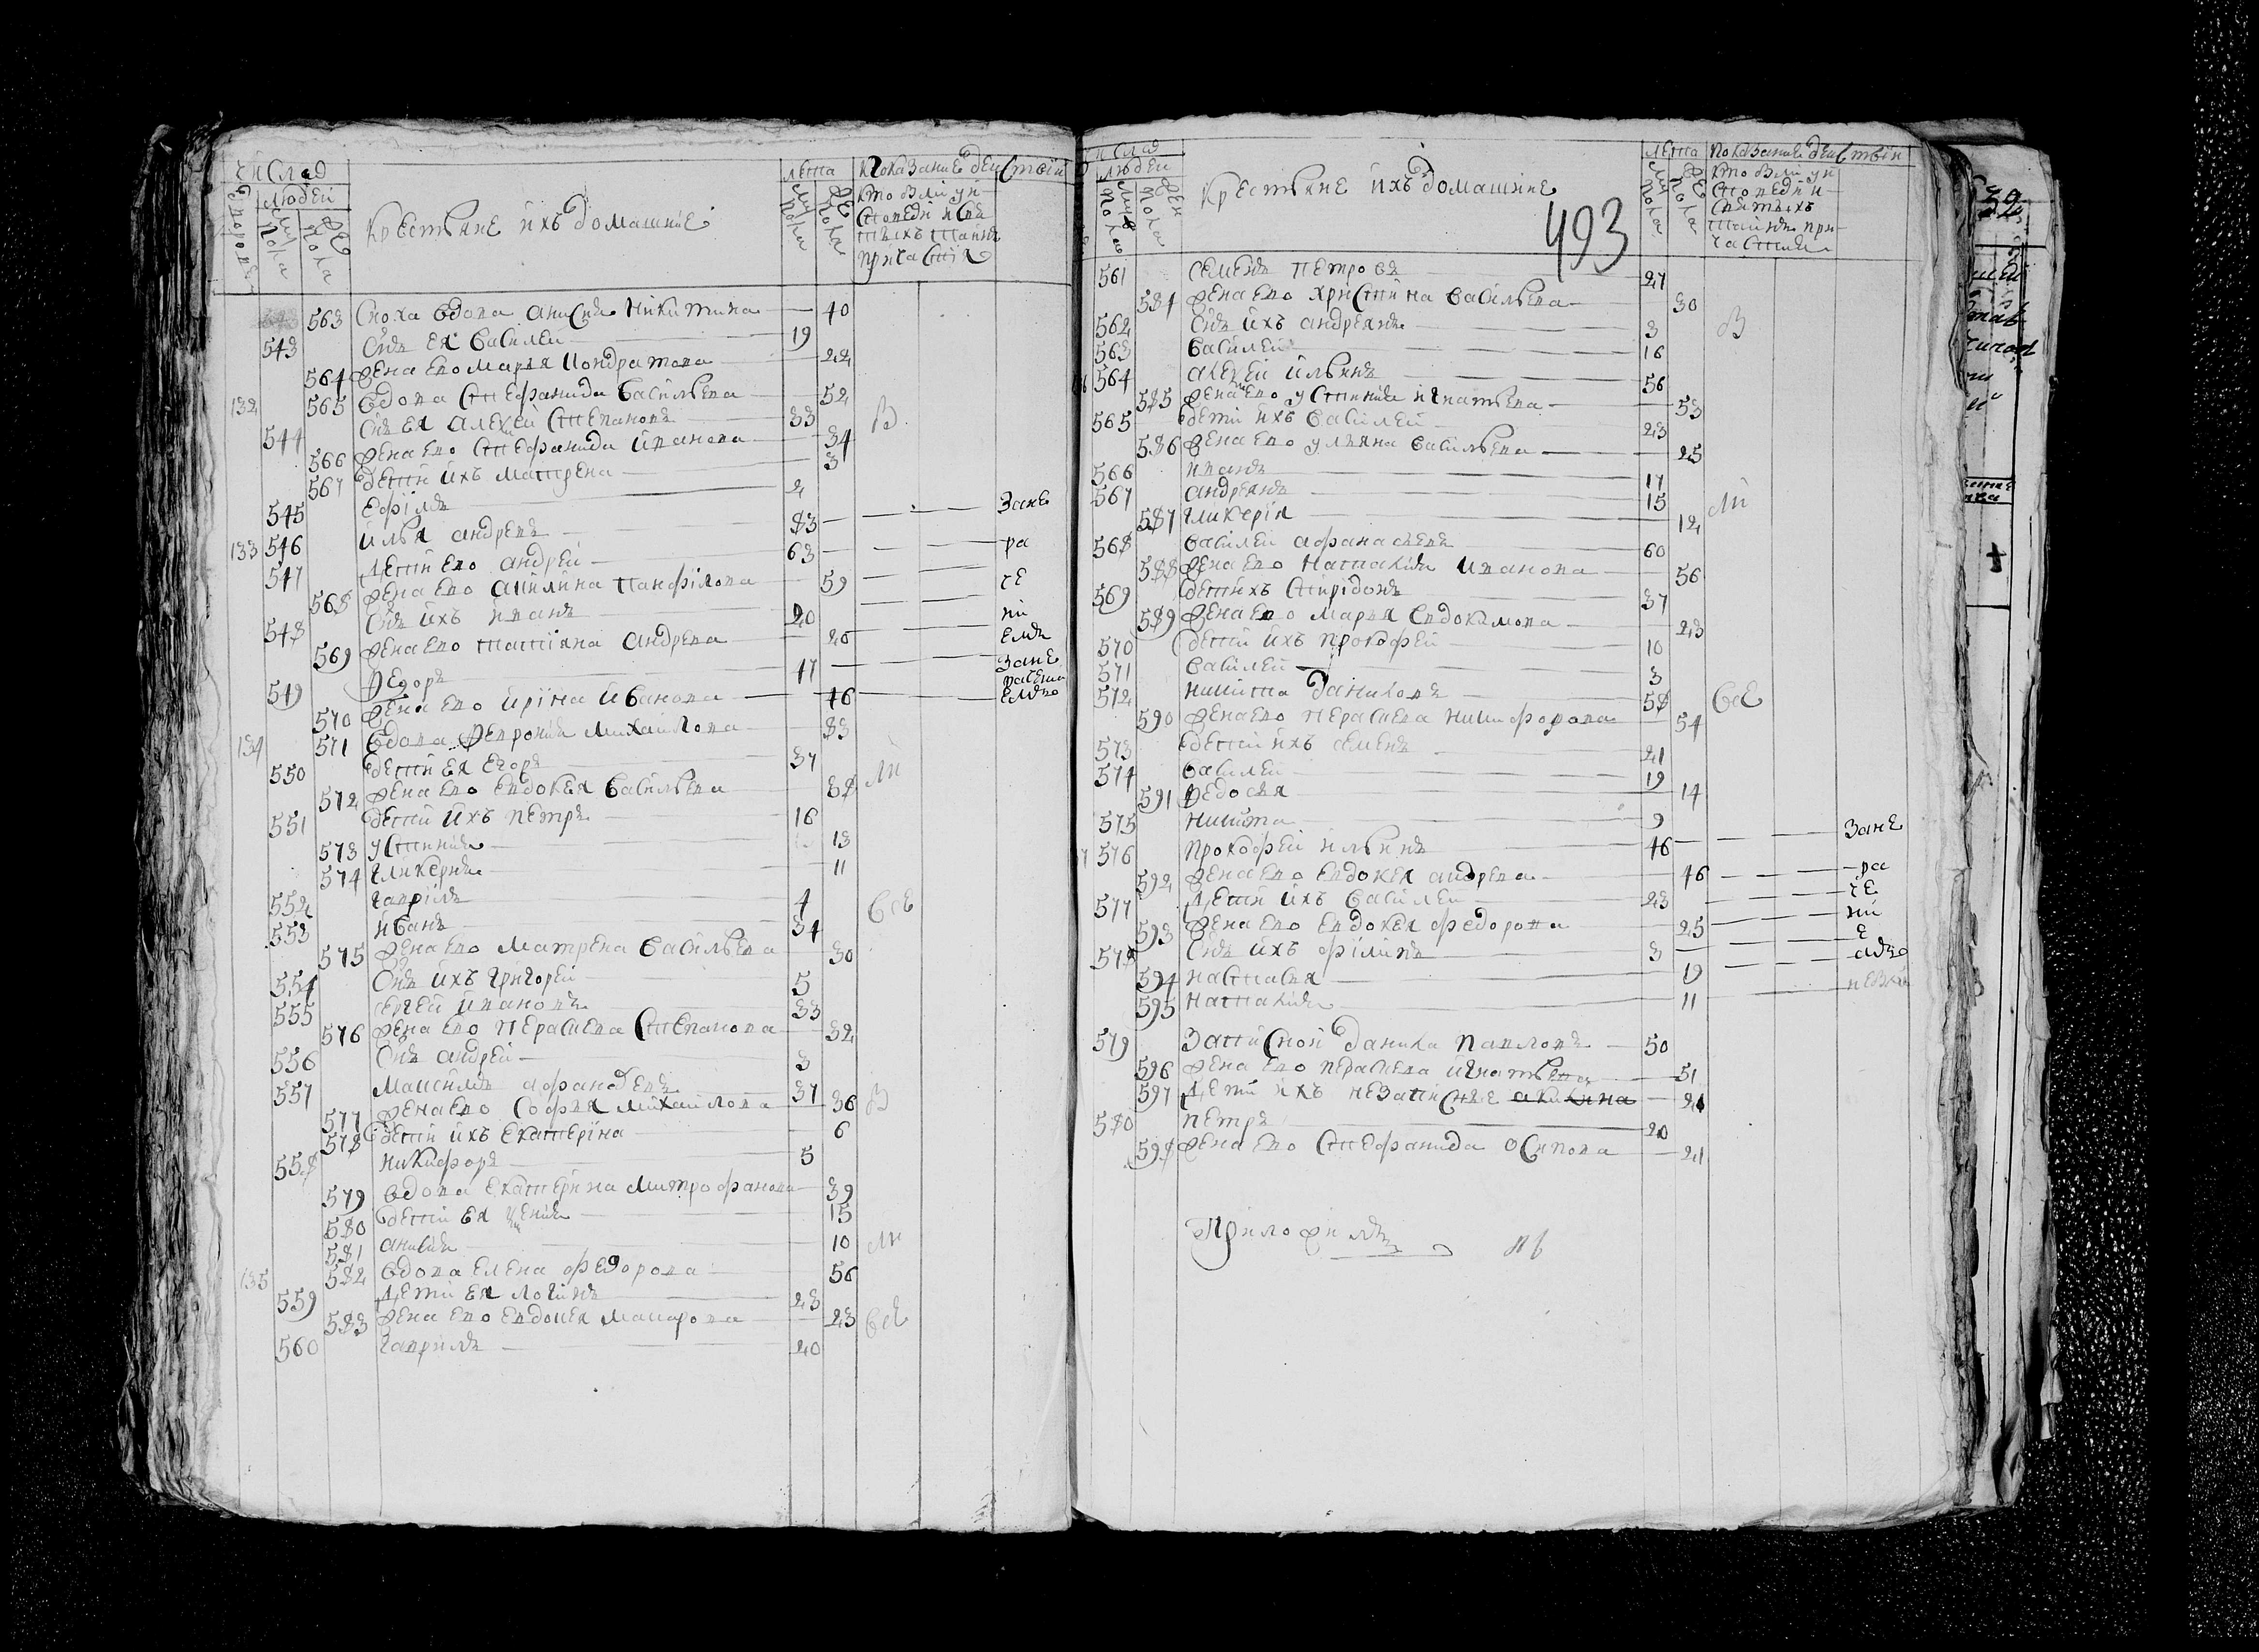 числа
людей
лета
показание действии
муска пола
же пола
Крестьяне ихъ домашние
кто были у и
споведи и свя
тыхъ таинъ
причастия
563 Сноха вдова анисия Никитина — 40
543 Снъ ея василеи — 19
564 жена ево Марья Кондратова — 22
132 565 вдова Стефанида васильева — 52
544 Снъ ея алексеи Степановъ — 33 В
566 жена ево Стефанида иванова — 34
567 дети ихъ матрена — 3
545 ефимъ — 2
133 546 илья андреевъ — 83 — зане
547 Дети ево андреи — 63 — ра
568 жена ево акилина панфилова — 59 — че
548 Снъ ихъ иванъ — 20 — ни
569 жена ево татияна андреева — 20 — емъ
549 Федоръ — 17 — зане
570 жена ево ирина иванова — 16 — емъ
134 571 вдова Феврония михаилова — 83
550 дети ея егоръ — 37
572 жена ево евдокея васильева — 38 ли
551 дети ихъ петръ — 16
573 устиния — 13
574 гликерия — 11
552 гаврилъ — 4
553 иванъ — 34 все
575 жена ево матрена васильева — 30
554 Снъ ихъ григореи — 5
555 сергеи ивановъ — 33
576 жена ево перасцева Степанова — 32
556 Снъ андреи — 3
557 максимъ афанасевъ — 37
577 жена ево Софья михаилова — 36 В
578 дети ихъ екатерина — 6
558 никифоръ — 5
579 вдова екатерина митрофанова — 39
580 дети ея — 15
581 — 10 ли
135 582 вдова елена федорова — 56
559 Дети ея логинъ — 23
583 жена ево евдокея макарова — 23 все
560 гаврилъ — 20
числа
людей
муска пола
жен пола
Крестьяне ихъ домашние
493
лета
показание действии
кто были у и
споведи и
святыхъ
таинъ при
частия
561 семенъ петровъ — 27
584 жена ево христина васильева — 30
562 Снъ ихъ андреянъ — 3 В
563 василеи — 16
564 алексеи ильинъ — 56
585 жена ево устиния игнатьева — 53
565 дети ихъ василеи — 23
586 жена ево ульяна васильева — 25
566 иванъ — 17
567 андреянъ — 15 ли
587 гликерия — 12
568 василеи афанасьевъ — 60
588 жена ево наталия иванова — 56
569 дети ихъ спиридонъ — 37
589 жена ево марья евдокимова — 23
570 дети ихъ прокофеи — 10
571 василеи — 3
572 никита даниловъ — 58 все
590 жена ево перасцева никифорова — 54
573 дети ихъ семенъ — 21
574 василеи — 19
591 федосья — 14
575 никита — 9
576 прокофеи ильинъ — 46 — зане
592 жена ево евдокея андреева — 46 — ра
577 Дети ихъ василеи — 23 — че
593 жена ево евдокея федорова — 25 — ни
578 Снъ ихъ филипъ — 3 — е
594 настасья — 19
595 наталия — 11
579 записнои данила павловъ — 50
596 жена ево перасцева игнатьева — 51
597 Дети ихъ незаписные акилина — 21
580 петръ — 20
598 жена ево Стефанида осипова — 21
Приложилъ